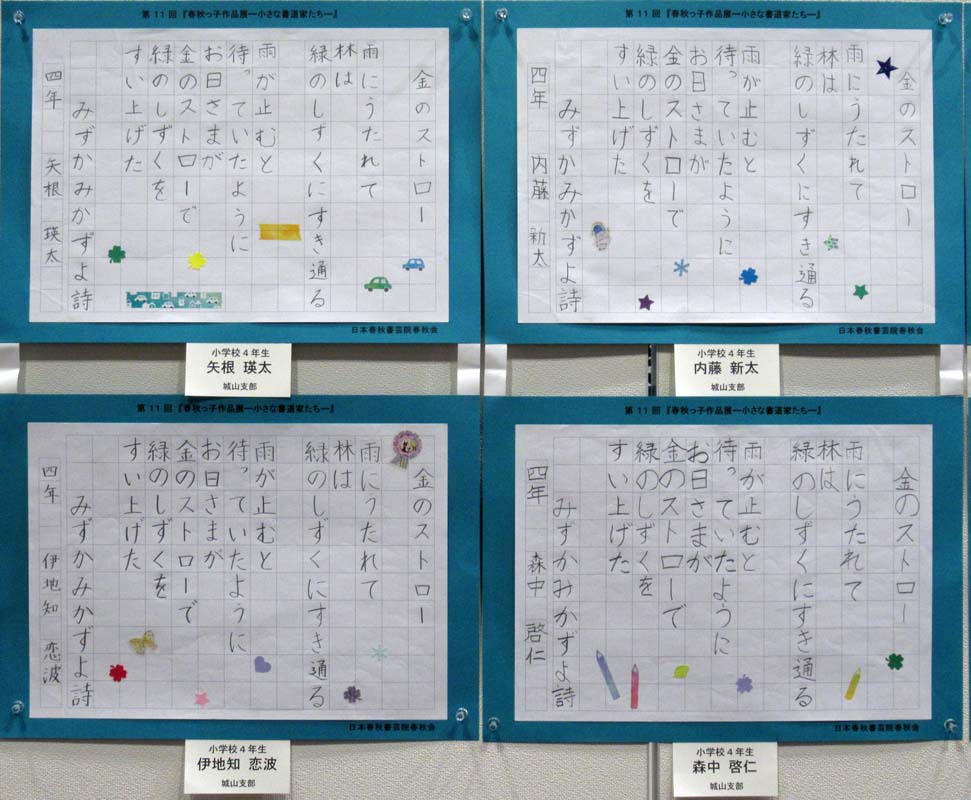 第11回『春秋っ子作品展ー小さな書道家たちー』
金のストロー
雨にうたれて
林は
緑のしずくにすき通る
雨が止むと
待っていたように
お日さまが
金のストローで
緑のしずくを
すい上げた
みずかみかずよ詩
四年 矢根 瑛太
日本春秋書芸院春秋会
小学校4年生
矢根 瑛太
城山支部
第11回『春秋っ子作品展ー小さな書道家たちー』
金のストロー
雨にうたれて
林は
緑のしずくにすき通る
雨が止むと
待っていたように
お日さまが
金のストローで
緑のしずくを
すい上げた
みずかみかずよ詩
四年 内藤 新太
日本春秋書芸院春秋会
小学校4年生
内藤 新太
城山支部
第11回『春秋っ子作品展ー小さな書道家たちー』
金のストロー
雨にうたれて
林は
緑のしずくにすき通る
雨が止むと
待っていたように
お日さまが
金のストローで
緑のしずくを
すい上げた
みずかみかずよ詩
四年 伊地知 恋波
日本春秋書芸院春秋会
小学校4年生
伊地知 恋波
城山支部
第11回『春秋っ子作品展ー小さな書道家たちー』
金のストロー
雨にうたれて
林は
緑のしずくにすき通る
雨が止むと
待っていたように
お日さまが
金のストローで
緑のしずくを
すい上げた
みずかみかずよ詩
四年 森中 啓仁
日本春秋書芸院春秋会
小学校4年生
森中 啓仁
城山支部